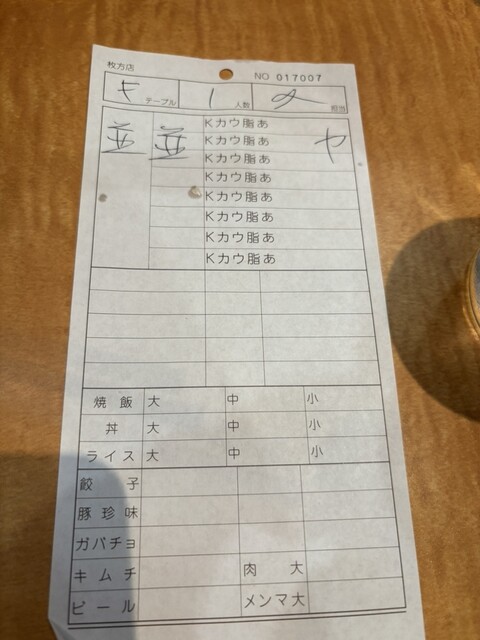 枚方店
NO 017007
テーブル 1 人数 担当
Kカウ脂あ
並 並 Kカウ脂あ ヤ
Kカウ脂あ
Kカウ脂あ
Kカウ脂あ
Kカウ脂あ
Kカウ脂あ
Kカウ脂あ
焼飯 大 中 小
丼 大 中 小
ライス 大 中 小
餃子
豚珍味
ガパチョ
キムチ 肉大
ビール メンマ大